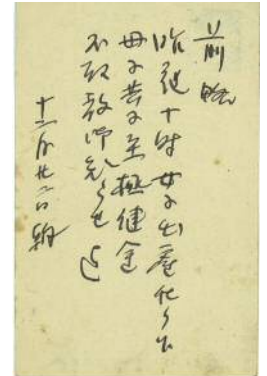 前略
昨夜十時女子出産仕り候
母子共に至極健全
不取敢御知らせ迄
十二月廿二日朝